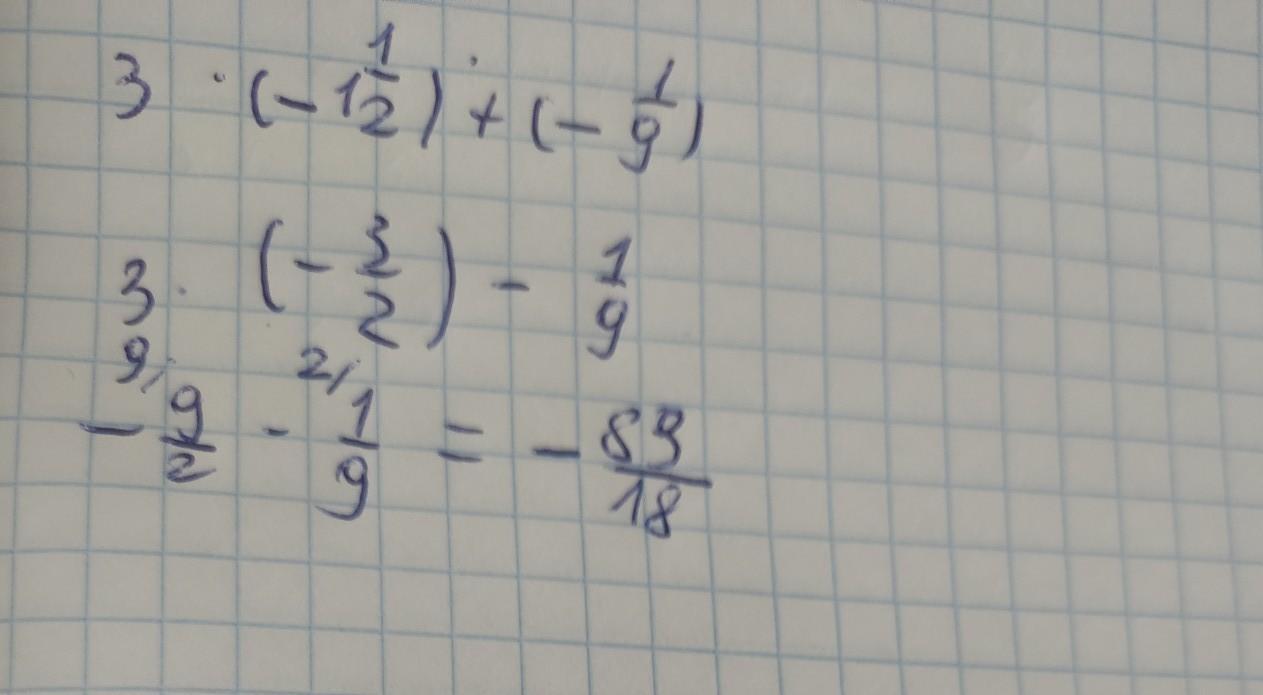 3 · (- 1 1/2) + (- 1/9)
3 · (- 3/2) - 1/9
9/ 2/
- 9/2 - 1/9 = - 83/18